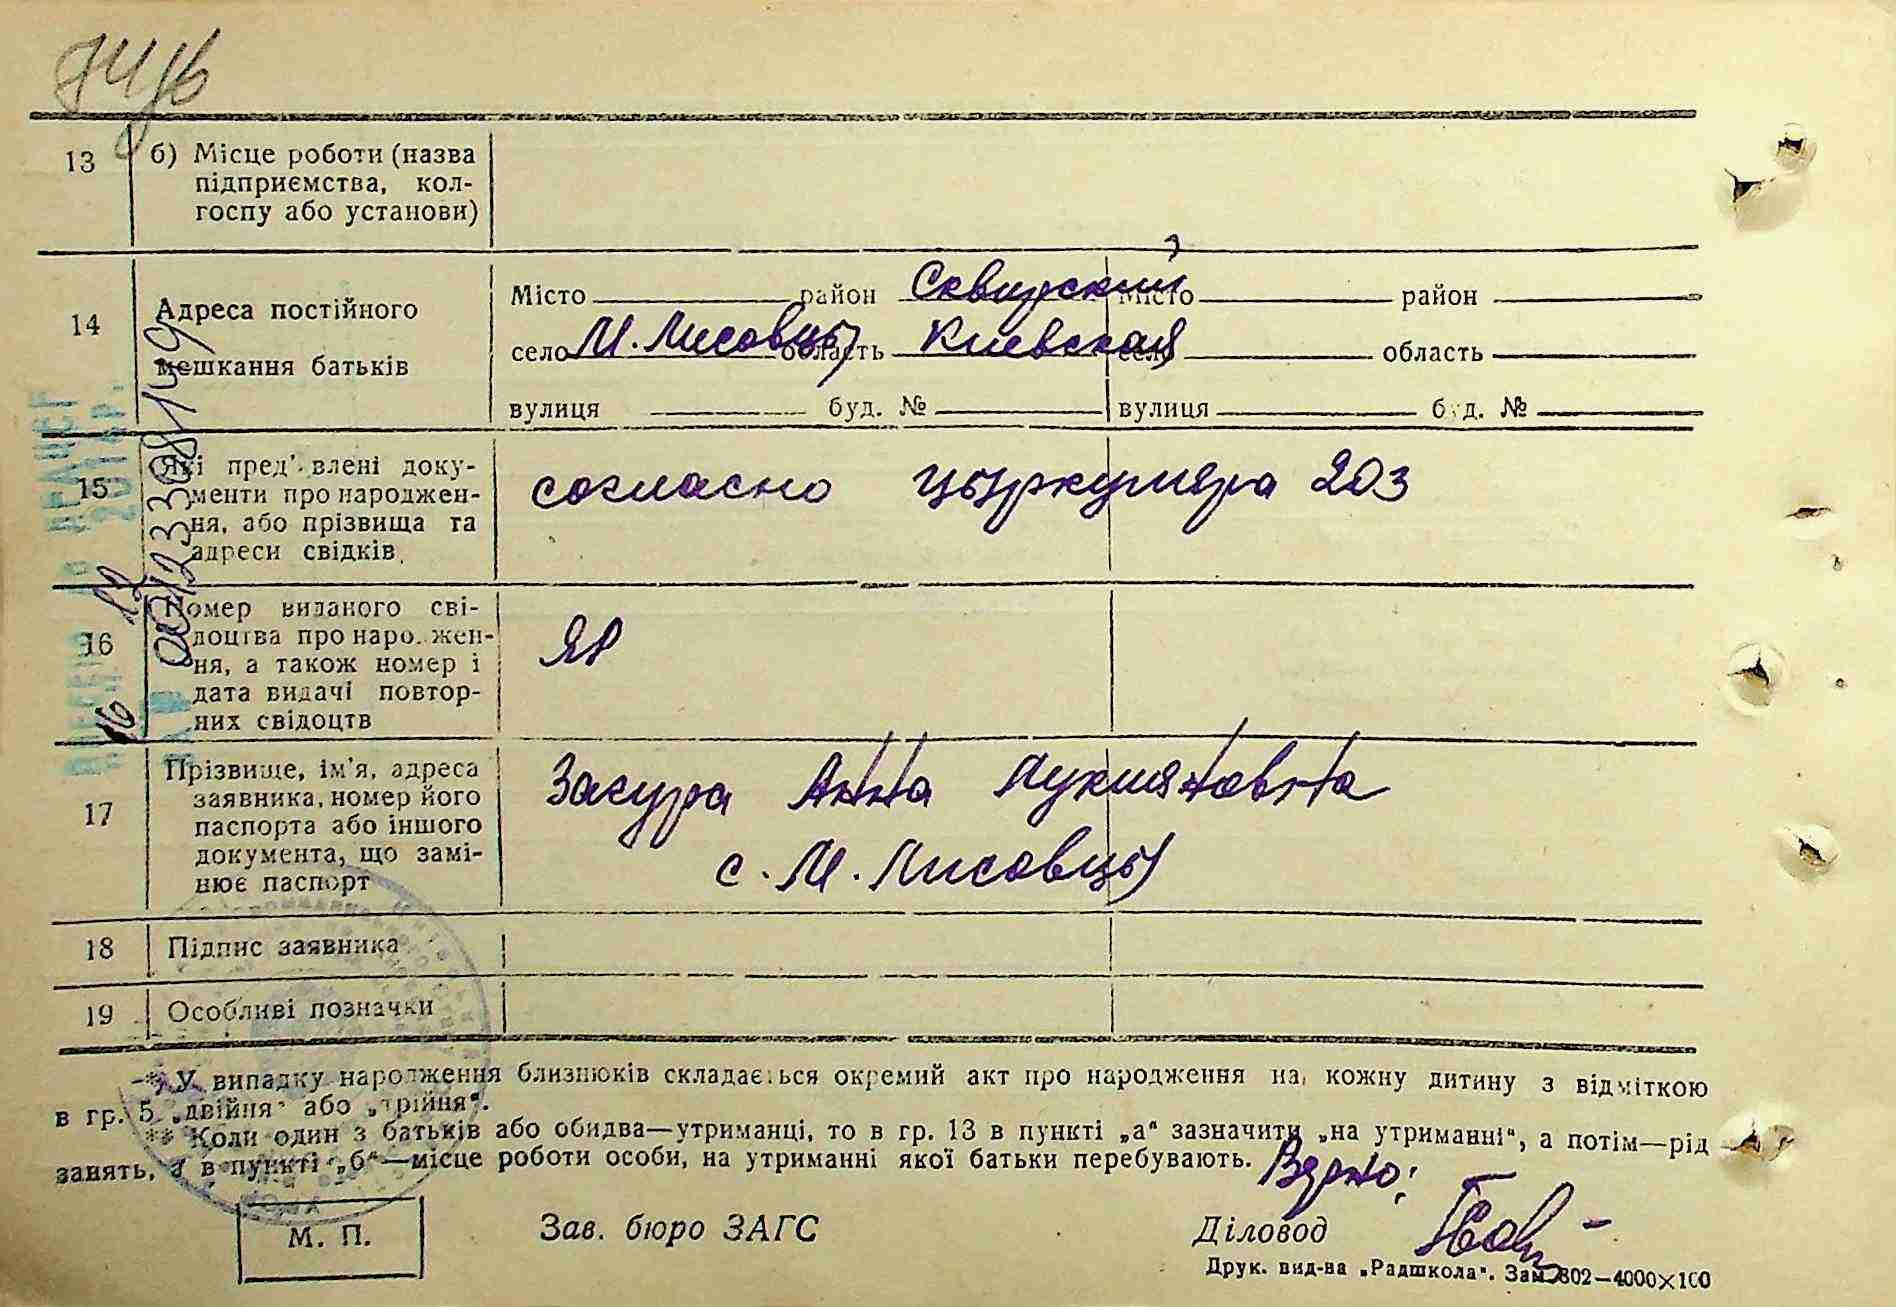 13 б) Місце роботи (назва
підприємства, кол-
госпу або установи)
14 Адреса постійного
мешкання батьків
Місто район Сквирский місто район
село М. Лисовцы область Киевская село область
вулиця буд. № вулиця буд. №
15 Які пред'влені доку-
менти про народжен-
ня, або прізвища та
адреси свідків.
согласно цыркуляра 203
16 Номер виданого сві-
доцтва про народжен-
ня, а також номер і
дата видачі повтор-
них свідоцтв
ЯР
17 Прізвище, ім'я, адреса
заявника, номер його
паспорта або іншого
документа, що замі-
нює паспорт
Засура Анна Лукияновна
с. М. Лисовцы
18 Підпис заявника
19 Особливі позначки
*) У випадку народження близнюків складається окремий акт про народження на кожну дитину з відміткою
в гр. 5 „двійня" або „трійня".
** Коли один з батьків або обидва—утриманці, то в гр. 13 в пункті „а" зазначити „на утриманні", а потім—рід
занять, а в пункті „б"—місце роботи особи, на утриманні якої батьки перебувають. Верно:
М. П. Зав. бюро ЗАГС Діловод
Друк. вид-ва „Радшкола". Зам. 802—4000×100